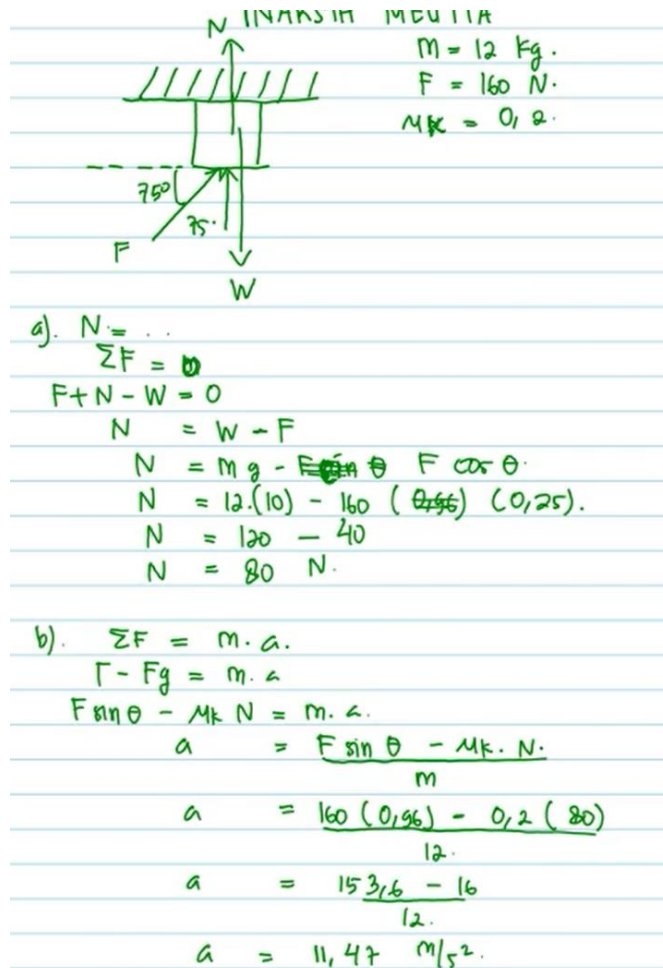 INAKSIH MEUTIA
N
m = 12 kg.
F = 160 N.
μk = 0,2.
75°
75°
F
W
a). N = ...
ΣF = 0
F + N - W = 0
N = W - F
N = mg - F sin θ F cos θ.
N = 12.(10) - 160 (0,96) (0,25).
N = 120 - 40
N = 80 N.
b). ΣF = m.a.
F - Fg = m.a
F sin θ - μk N = m.a.
a = F sin θ - μk. N.
m
a = 160 (0,96) - 0,2 (80)
12.
a = 153,6 - 16
12.
a = 11,47 m/s².